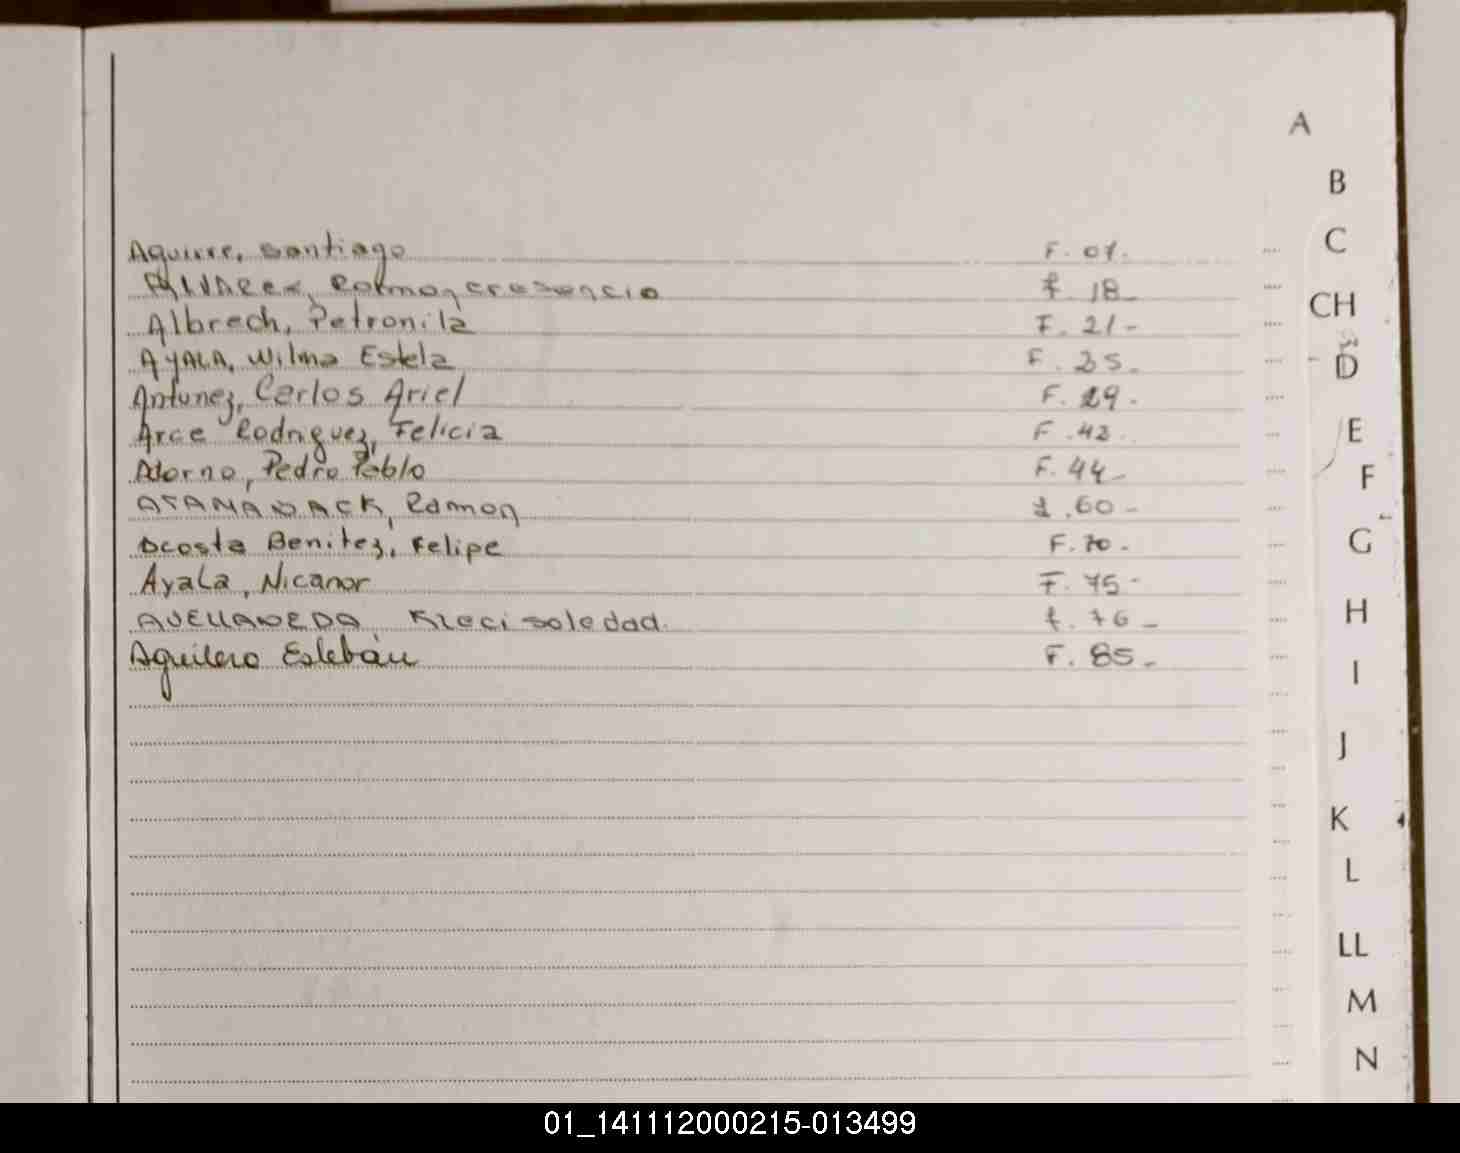 A
B
C
CH
D
E
F
G
H
I
J
K
L
LL
M
N
Aguirre, Santiago F. 07.
Alvarez, Ramon cresencio f. 18-
Albrech, Petronila F. 21-
AYALA, Wilma Estela F. 35.
Antunez, Carlos Ariel F. 29.
Arce Rodriguez, Felicia F. 42.
Adorno, Pedro Pablo F. 44-
Ramon f. 60-
Acosta Benitez, Felipe F. 70.
Ayala, Nicanor F. 75-
AVELLANEDA soledad f. 76-
Aguilero Esteban F. 85-
01_141112000215-013499